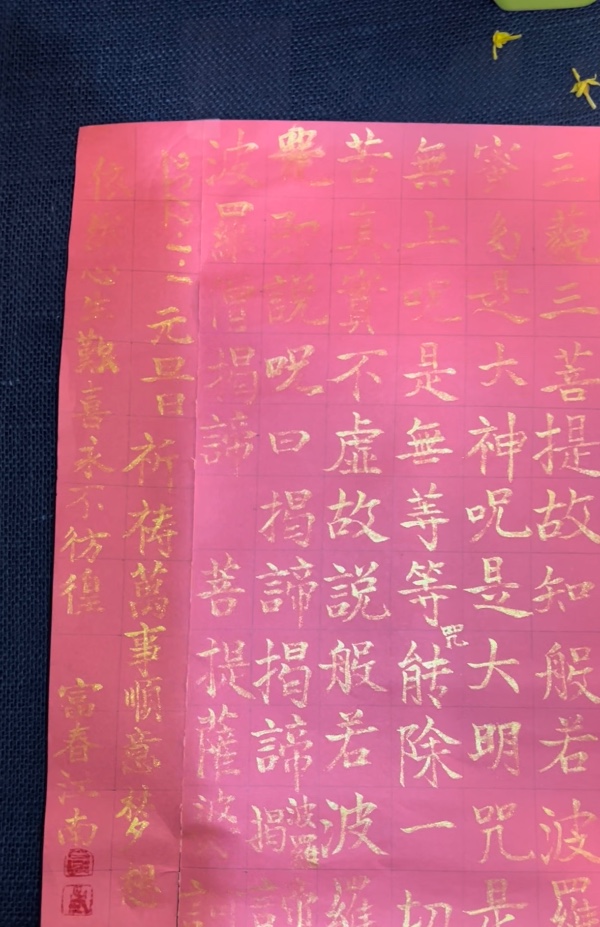 三藐三菩提故知般若波羅
蜜多是大神呪是大明咒是
無上呪是無等等咒能除一切
苦真實不虛故說般若波羅
即說呪曰揭諦揭諦波羅揭諦
波羅僧揭諦菩提薩婆訶
2022.1.1元旦日祈祷萬事順意梦想
心生歡喜永不彷徨
富春江南